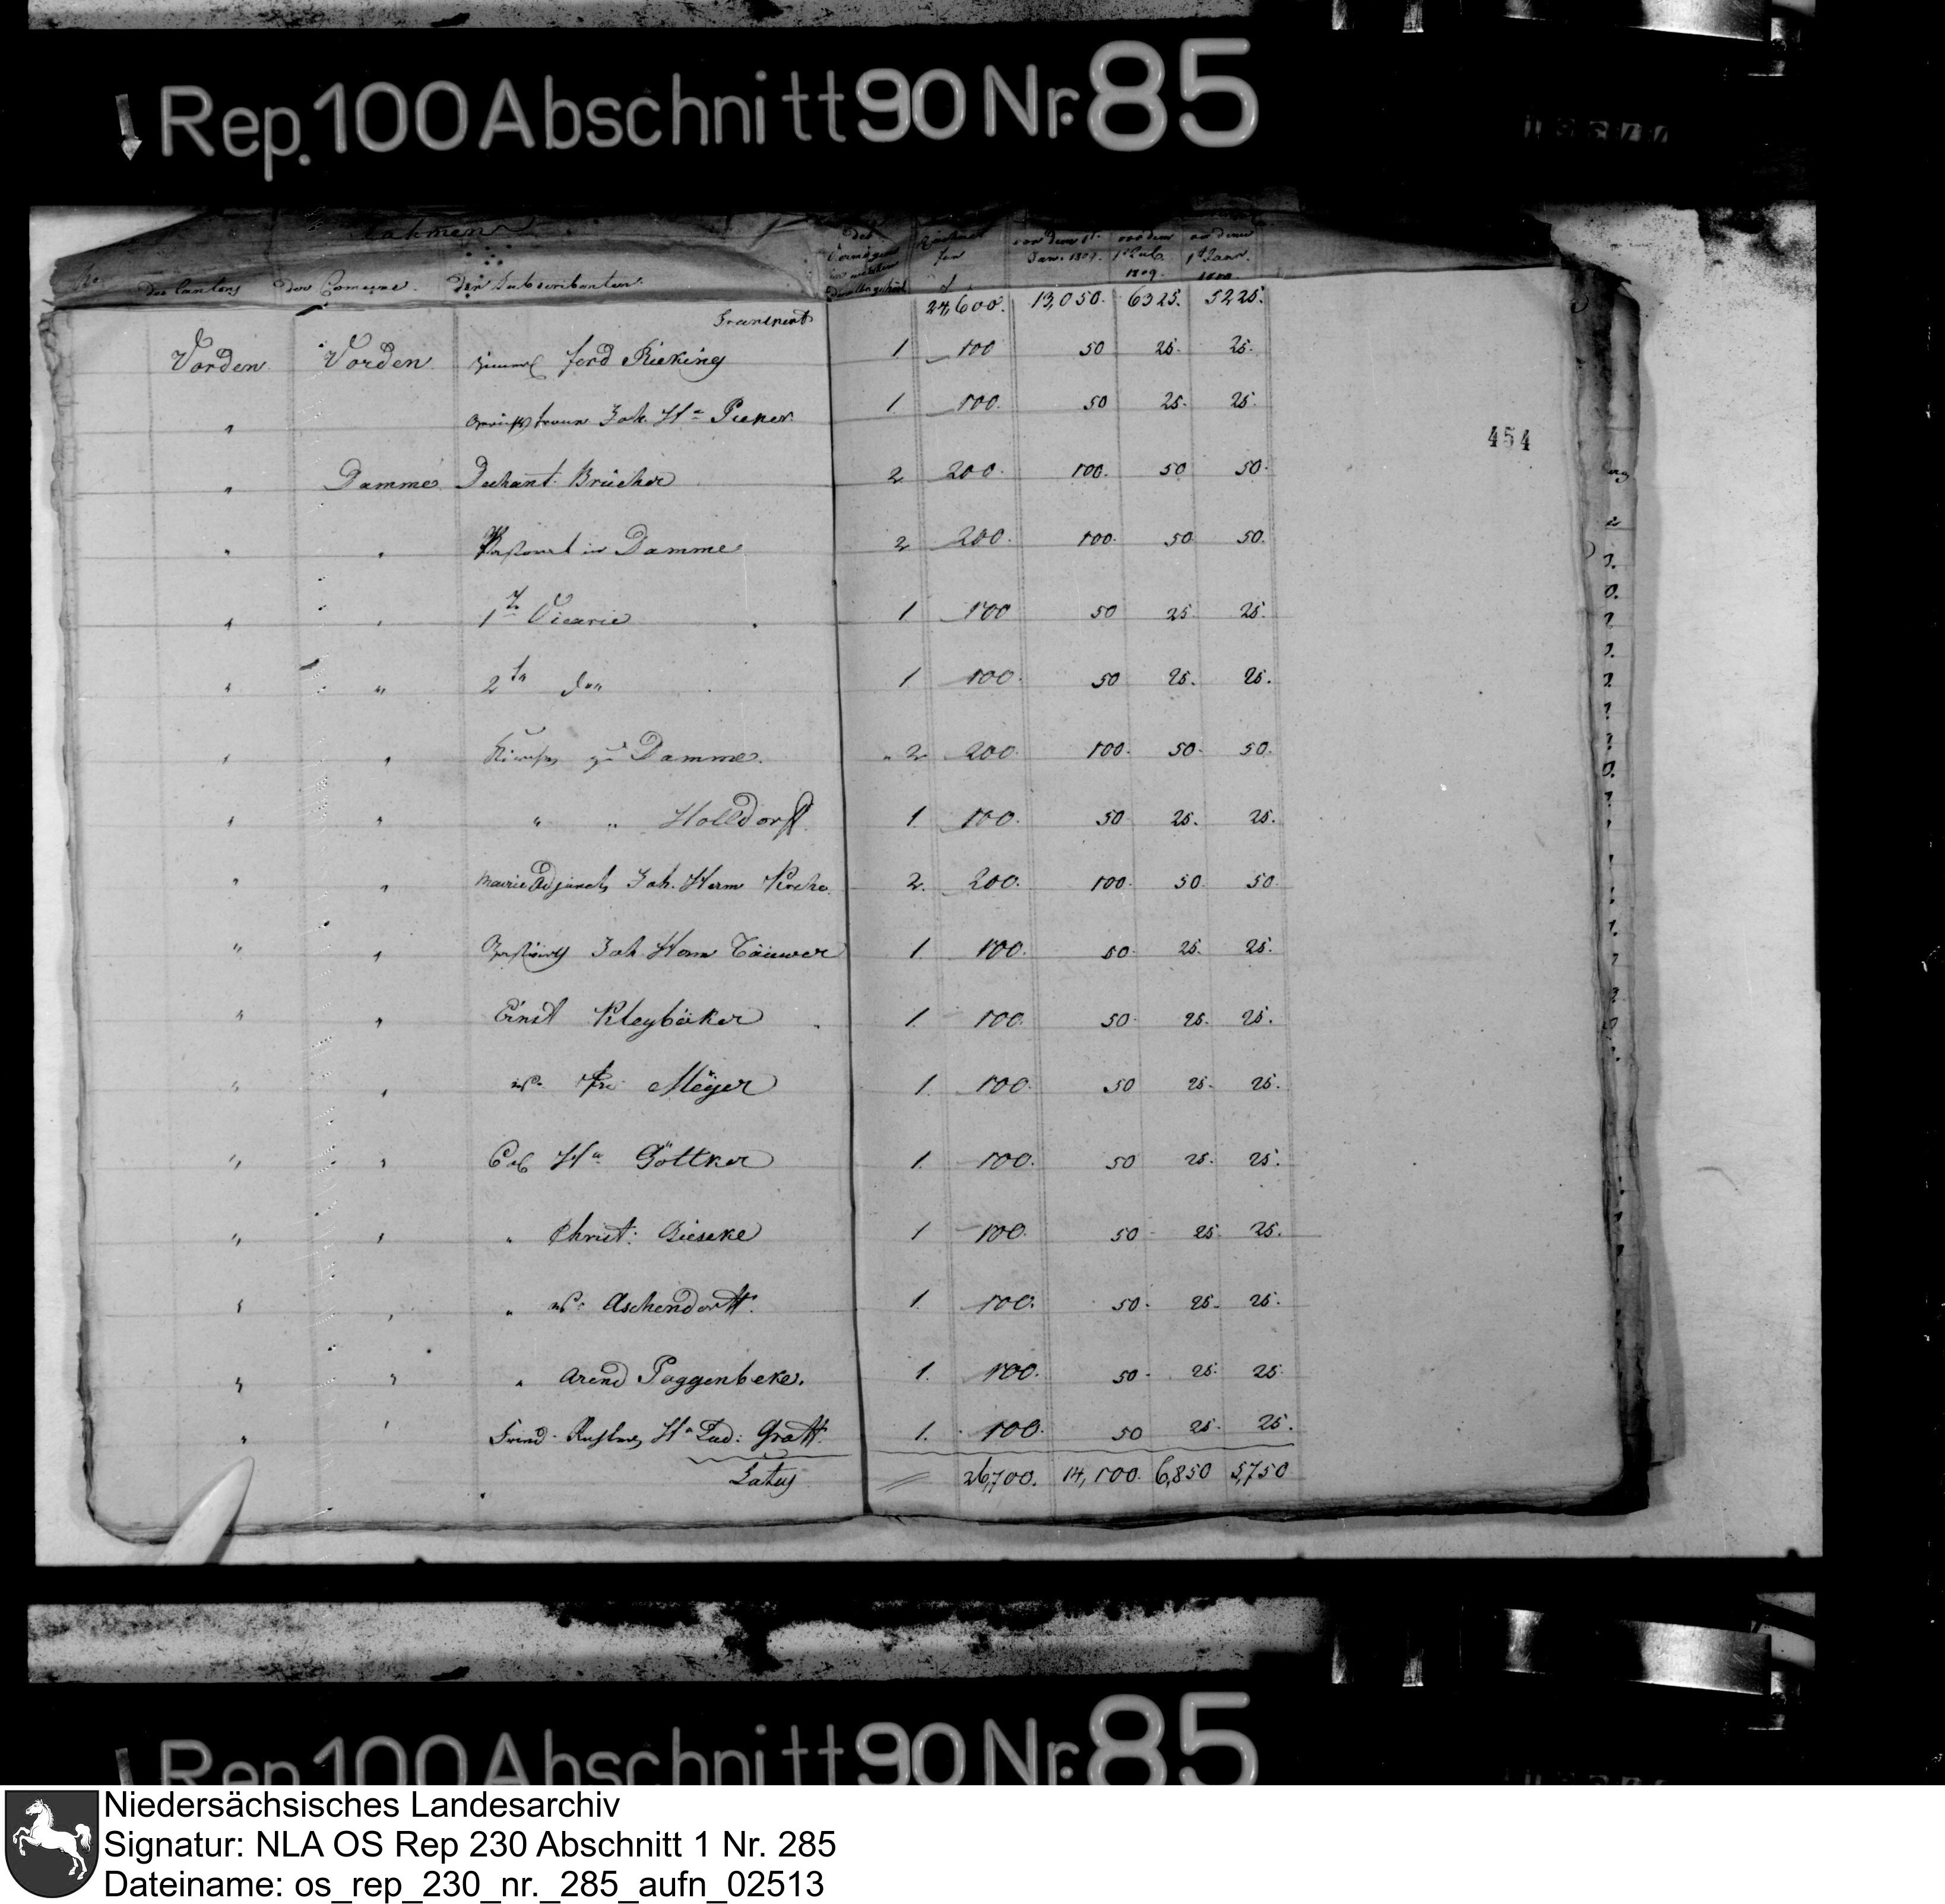 Rep. 100 Abschnitt 90 Nr. 85
Nahmen
des Cantons der Comune. der Subscribenten. des Vermögens von dem 1t. Jan. 1809. von dem 1t Jul. 1809. von dem 1t Janr. 1810.
Transport 24,600. 13,050. 6325. 5225.
Vorden Vorden ford Rieking 1 100 50 25. 25.
" Joh. Hn Pieper. 1. 100. 50 25. 25.
" Damme. Dechant Brücher 2 200. 100. 50 50.
" " in Damme 2 200. 100. 50 50.
" " 1te Vicarie 1 100 50 25 25.
" " 2te 1 100. 50 25. 25.
" " zu Damme. 2 200. 100. 50. 50.
" " " " Holldorf 1. 100. 50 25. 25.
" " Mairie Adjunct Joh. Herm 2. 200. 100. 50. 50.
" " Joh. Herm 1. 100. 50. 25. 25.
" " Ernst Kleyböker 1. 100. 50. 25. 25.
" " Meÿer 1. 100. 50 25. 25.
" " Col Hn Göttker 1. 100. 50 25. 25.
" " " Christ: Gieseke 1 100. 50 25 25.
" " " Aschendorff. 1. 100. 50. 25. 25.
" " " Arend Poggenbeke. 1. 100. 50. 25. 25.
" " Hn Lud: Graff. 1. 100. 50 25. 25.
Latus 26,700. 14,100. 6,850 5,750
454
Rep. 100 Abschnitt 90 Nr. 85
Niedersächsisches Landesarchiv
Signatur: NLA OS Rep 230 Abschnitt 1 Nr. 285
Dateiname: os_rep_230_nr._285_aufn_02513